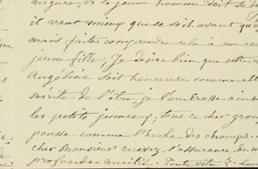 augure, si le jeune homme doit se d
il vaut mieux que ce soit avant qu
mais faites comprendre cela à un cœ
jeune fille, je désire bien que cette
Angéline soit heureuse comme elle
mérite de l'être, je l'embrasse ainsi
les petits jumeaux, tout ce cher gro
pousse comme l'herbe des champs.
cher Monsieur recevez l'assurance de m
profonde amitié. Toute vôtre